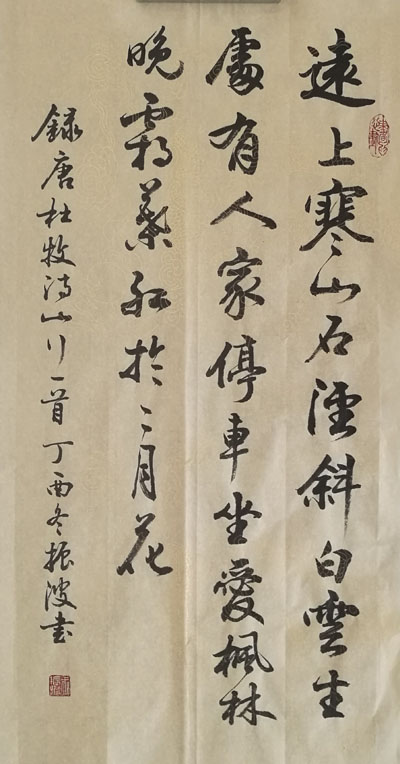 遠上寒山石徑斜白雲生
處有人家停車坐愛楓林
晚霜葉紅於二月花
録唐杜牧詩山行一首丁酉冬振波書